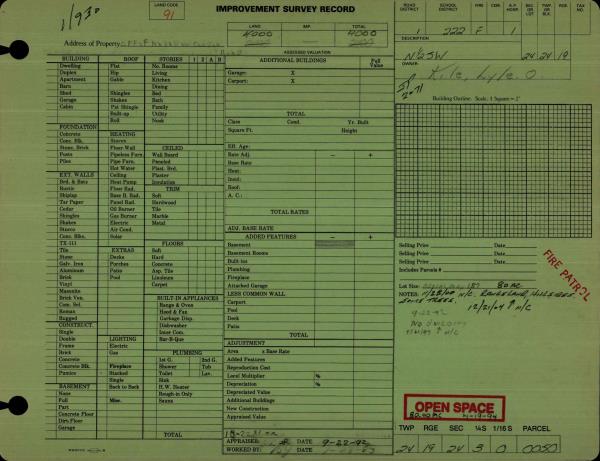 1/93
LAND CODE
91
IMPROVEMENT SURVEY RECORD
LAND IMP. TOTAL
4000 4000
ASSESSED VALUATION
Address of Property
ROAD DISTRICT SCHOOL DISTRICT FIRE A.P. HOUR TWP OR BLK SEC OR LOT RGE TAX NO.
1 222 F 1
DESCRIPTION
N2SW 24 24 19
OWNER
Kile, Lyle O.
Building Outline. Scale. 1 Square = 2'
BUILDING ROOF STORIES 1 2 A B
Dwelling Flat No. Rooms
Duplex Hip Living
Apartment Gable Kitchen
Barn Dining
Shed Shingles Bed
Garage Shakes Bath
Cabin Pat Shingle Family
Built-up Utility
Roll Nook
FOUNDATION HEATING
Concrete Stoves
Conc. Blk. Floor-Wall CEILED
Stone, Brick Pipeless Furn. Wall Board
Posts Pipe Furn. Paneled
Piles Hot Water Plast. Brd.
EXT. WALLS Ceiling Plaster
Brd. & Bats Heat Pump Insulation
Rustic Floor Rad. TRIM
Shiplap Base B. Rad. Soft
Tar Paper Panel Rad. Hardwood
Cedar Oil Burner Tile
Shingles Gas Burner Marble
Shakes Electric Metal
Stucco Air Cond.
Conc. Blks. Solar
TX-111 FLOORS
Tile EXTRAS Soft
Stone Decks Hard
Galv. Iron Porches Concrete
Aluminum Patio Asp. Tile
Brick Pool Linoleum
Vinyl Carpet
Masonite
Brick Ven. BUILT-IN APPLIANCES
Com. Sel. Range & Oven
Roman Hood & Fan
Rugged Garbage Disp.
CONSTRUCT. Dishwasher
Single Inter Com.
Double LIGHTING Bar-B-Que
Frame Electric
Brick Gas PLUMBING
Concrete 1st G. 2nd G.
Concrete Blk. Fireplace Shower Tub
Pumice Stacked Toilet Lav.
Single Sink
BASEMENT Back to Back H.W. Heater
None Rough-in Only
Full Misc. Sauna
Part
Concrete Floor
Dirt.Floor
Garage TOTAL
ADDITIONAL BUILDINGS Full Value
Garage: X
Carport: X
TOTAL
Class Cond. Yr. Built
Square Ft. Height
Eff. Age:
Rate Adj. − +
Base Rate
Heat:
Insul:
Roof:
A. C.:
TOTAL RATES
ADJ. BASE RATE
ADDED FEATURES − +
Basement
Basement Rooms
Built-ins
Plumbing
Fireplace
Attached Garage
LESS COMMON WALL
Carport
Pool
Deck
Patio
TOTAL
ADJUSTMENT
Area x Base Rate
Added Features
Reproduction Cost
Local Multiplier %
Depreciation %
Depreciated Value
Additional Buildings
New Construction
Appraised Value
APPRAISED: DATE 9-22-92
WORKED BY: DATE
Selling Price Date
Selling Price Date
Selling Price Date
Includes Parcels #
FIRE PATROL
Lot Size: 80 AC
NOTES: N/C.
12/21/04 N/C
9-22-92
OPEN SPACE
80.00 AC
TWP RGE SEC ¼S 1/16 S PARCEL
24 19 24 3 0 0050